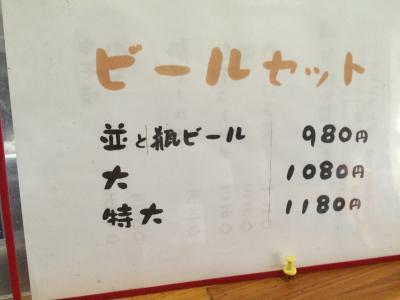 ビールセット
並と瓶ビール 980円
大 1080円
特大 1180円